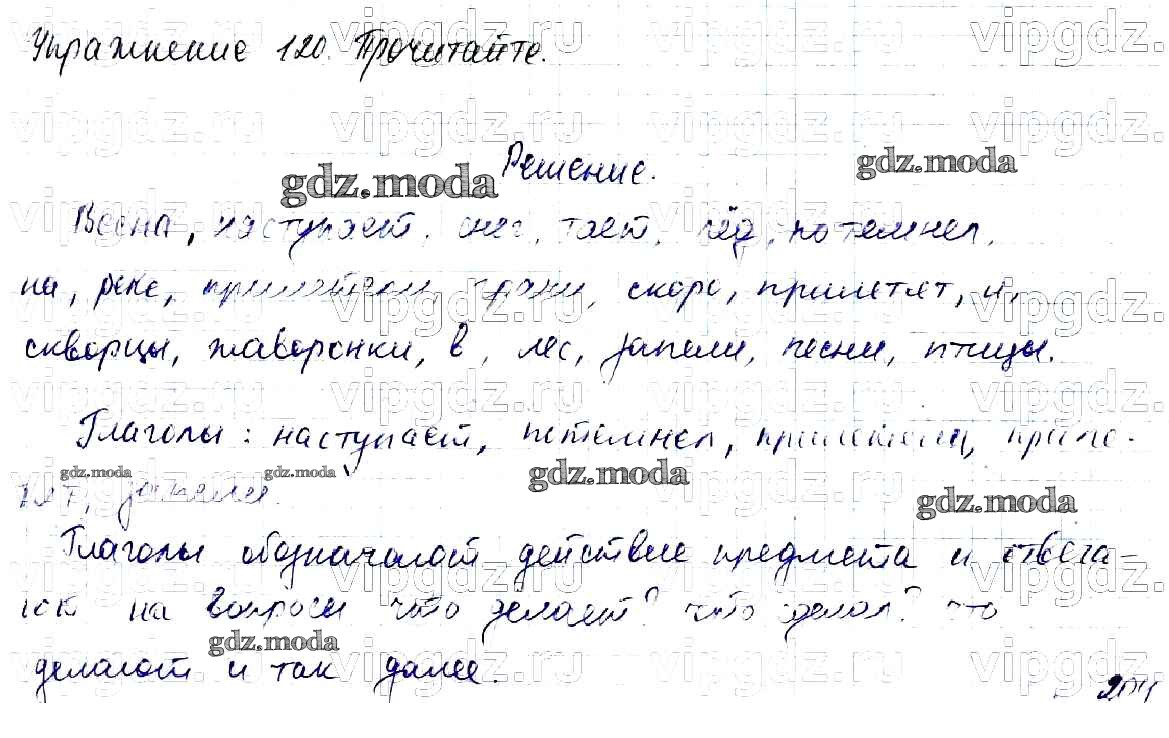 Упражнение 120. Прочитайте.
Решение.
Весна, наступает, снег, тает, лёд, потемнел,
на, реке, прилетели, грачи, скоро, прилетят, и,
скворцы, жаворонки, в, лес, запели, песни, птицы.
Глаголы: наступает, потемнел, прилетели, приле-
тят, запели.
Глаголы обозначают действие предмета и отвеча-
ют на вопросы что делает? что делал? что
делают и так далее.
204
gdz.moda
gdz.moda
gdz.moda
gdz.moda
gdz.moda
gdz.moda
gdz.moda
vipgdz.ru